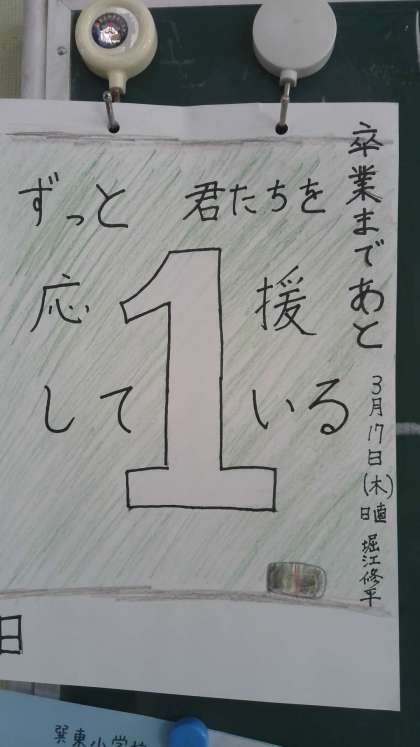 卒業まであと
ずっと 君たちを
応 援
して いる
1
日
3月17日(木)
日直 堀江修平
巽東小学校